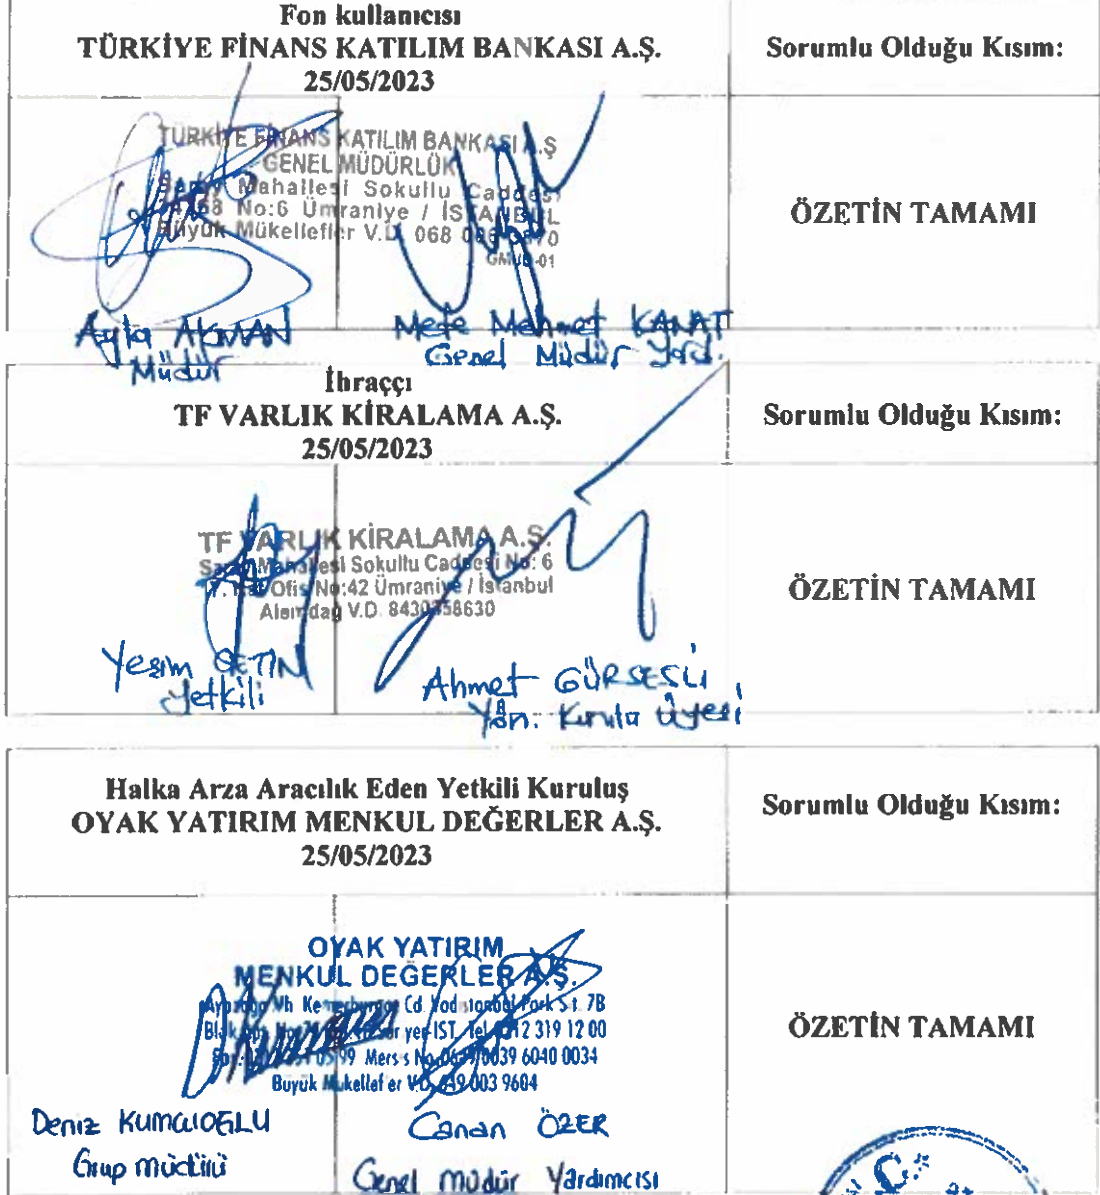 Fon kullanıcısı
TÜRKİYE FİNANS KATILIM BANKASI A.Ş.
25/05/2023
Sorumlu Olduğu Kısım:
TÜRKİYE FİNANS KATILIM BANKASI A.Ş
GENEL MÜDÜRLÜK
Saray Mahallesi Sokullu Caddesi
No:6 Ümraniye / İSTANBUL
Büyük Mükellefler V.D. 068
GMUB-01
ÖZETİN TAMAMI
Ayla AKMAN
Müdür
Mete Mehmet KANAT
Genel Müdür Yrd.
İhraççı
TF VARLIK KİRALAMA A.Ş.
25/05/2023
Sorumlu Olduğu Kısım:
TF VARLIK KİRALAMA A.Ş.
Saray Mahallesi Sokullu Caddesi No: 6
Ofis No:42 Ümraniye / İstanbul
Alemdağ V.D.
ÖZETİN TAMAMI
Yeşim ÇETİN
Yetkili
Ahmet GÜRSESLİ
Yön. Kurulu Üyesi
Halka Arza Aracılık Eden Yetkili Kuruluş
OYAK YATIRIM MENKUL DEĞERLER A.Ş.
25/05/2023
Sorumlu Olduğu Kısım:
OYAK YATIRIM
MENKUL DEĞERLER A.Ş.
Cd. Park Sit. 7B
IST. Tel 0212 319 12 00
99 Mersis No 0039 6040 0034
Büyük Mükellefler V.D. 003 9604
ÖZETİN TAMAMI
Deniz KUMCUOĞLU
Grup Müdürü
Canan ÖZER
Genel Müdür Yardımcısı